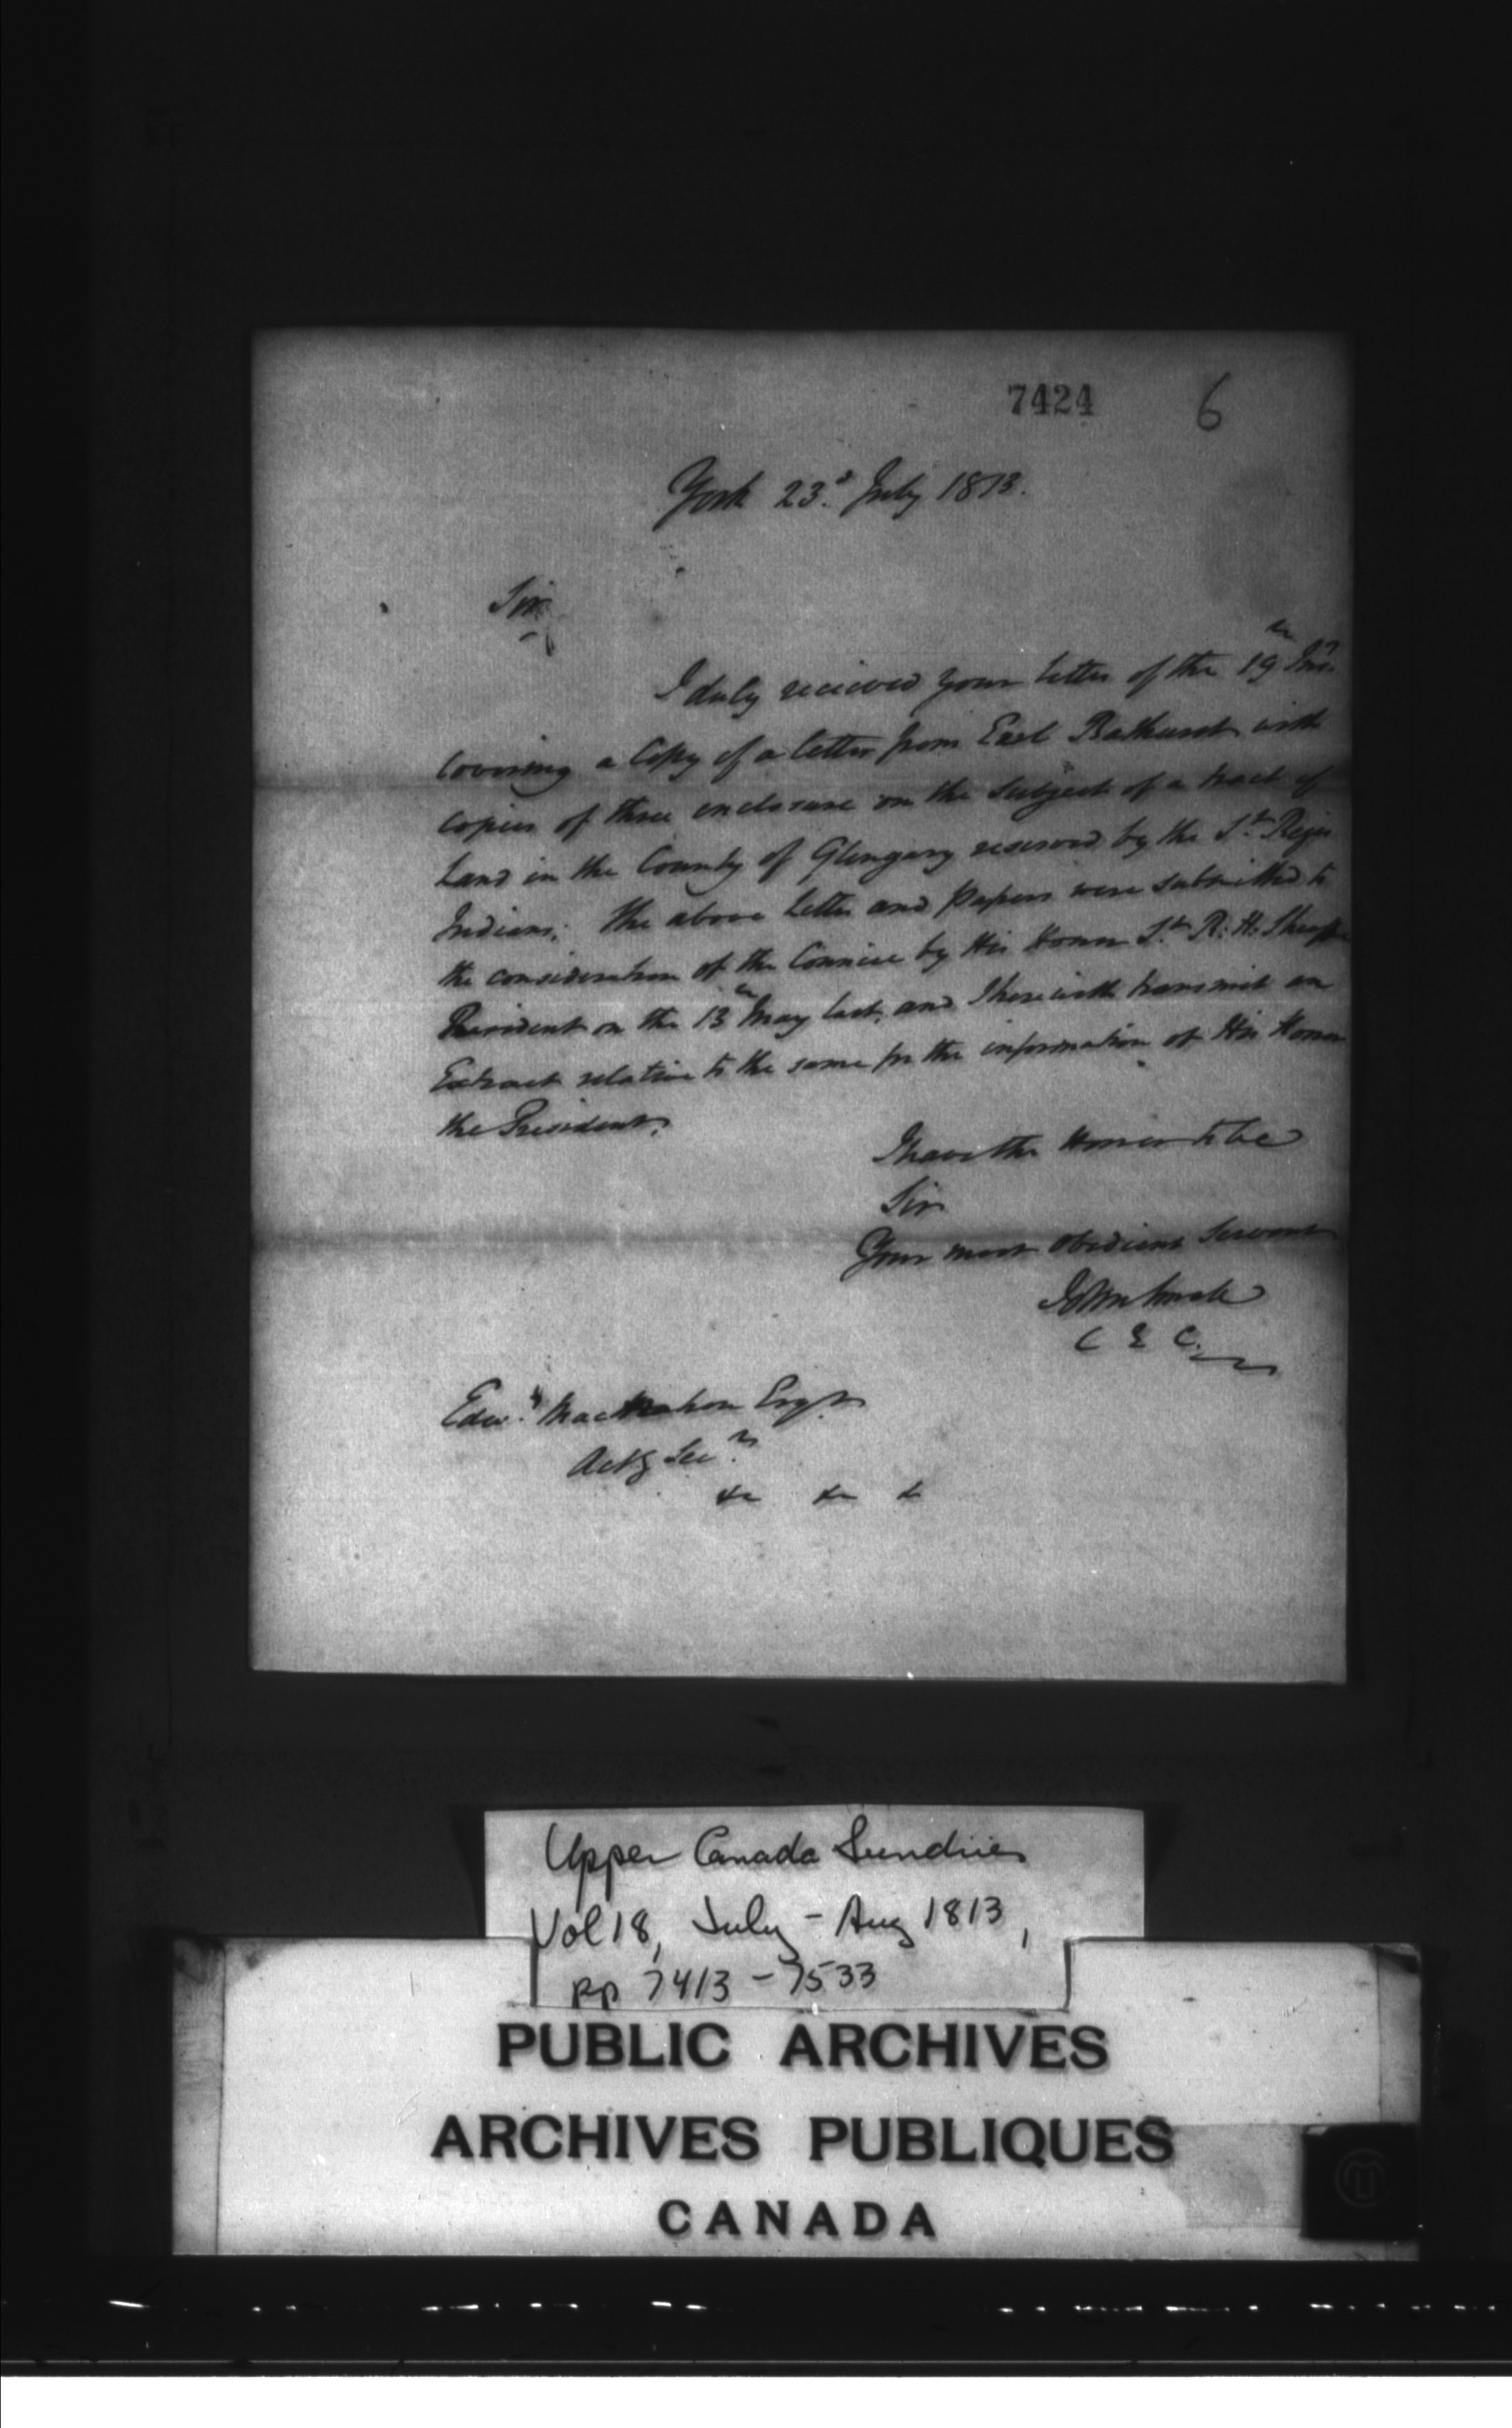 7424 6
York 23.d July 1813.
Sir
I duly recieved your letter of the 19th Inst.
covering a Copy of a letter from Earl Bathurst with
copies of three enclosure on the subject of a tract of
Land in the County of Glengary reserved by the St. Regis
Indians; the above letter and papers were submitted to
the consideration of the Council by His Honor Sr. R: H: Sheaffe
President on the 13th May last, and I herewith transmit an
Extract relative to the same for the information of His Honor
the President.
I have the Honor to be
Sir
Your most obedient Servant
John Small
C E C.
Edwd. MacMahon Esqr.
Actg Secy.
&c &c &c
Upper Canada Sundries
Vol 18, July - Aug 1813,
pp 7413 - 7533
PUBLIC ARCHIVES
ARCHIVES PUBLIQUES
CANADA